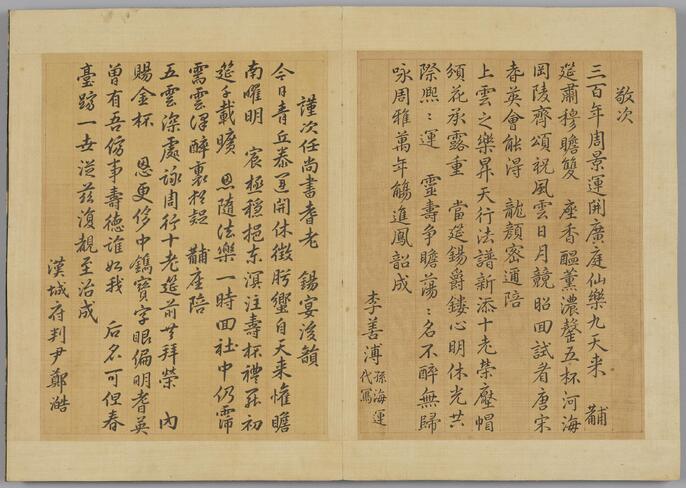 敬次
三百年周景運開廣庭仙樂九天来 黼
筵肅穆瞻雙 座香醞薰濃罄五杯河海
岡陵齊頌祝風雲日月競昭回試看唐宋
耆英會能得 龍顔密邇陪
上雲之樂昇天行法譜新添十老榮壓帽
須花承露重 當筵錫爵鏤心明休光共
際熙〻運 靈壽爭瞻蕩〻名不醉無歸
咏周雅萬年觴進鳳韶成
李善溥 孫海運
代寫
謹次任尚書耆老 錫宴後韻
今日青丘泰運開休徵肹蠁自天来惟瞻
南曜明 宸極穩挹东溟注壽杯禮罷初
筵千載曠 恩隨法樂一時回社中仍霈
需雲澤醉裏相趍 黼座陪
五雲深處詠周行十老筵前共拜榮 内
賜金杯 恩更侈中鐫寶字眼偏明耆英
曽有吾儕事壽德誰如我 后名可但春
臺躋一世従玆復覩至治成
漢城府判尹鄭澔